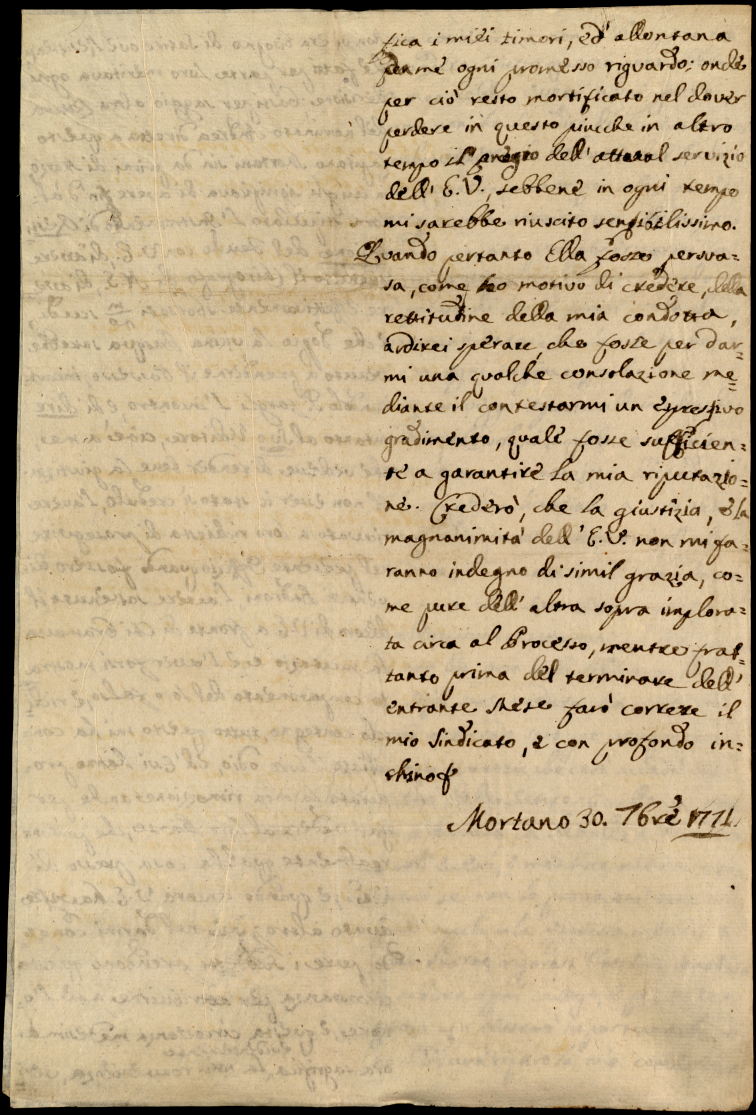 fica i miei timori, ed' allontana
da me ogni promesso riguardo: onde
per ciò resto mortificato nel dover
perdere in questo piucche in altro
tempo il pregio dell' attual servizio
dell' E. V., sebbene in ogni tempo
mi sarebbe riuscito sensibilissimo.
Quando pertanto Ella fosse persua=
sa, come ho motivo di credere, della
rettitudine della mia condotta,
ardirei sperare, che fosse per dar=
mi una qualche consolazione me=
diante il contestarmi un espressivo
gradimento, quale fosse sufficien=
te a garantire la mia riputazio=
ne. Crederò, che la giustizia, e la
magnanimità dell' E. V. non mi fa=
ranno indegno di simil grazia, co=
me pure dell' altra sopra implora=
ta circa al Processo, mentre frat=
tanto prima del terminare dell'
entrante Mese farò correre il
mio Sindicato, e con profondo in=
chino
Mortano 30. 7bre 1771.